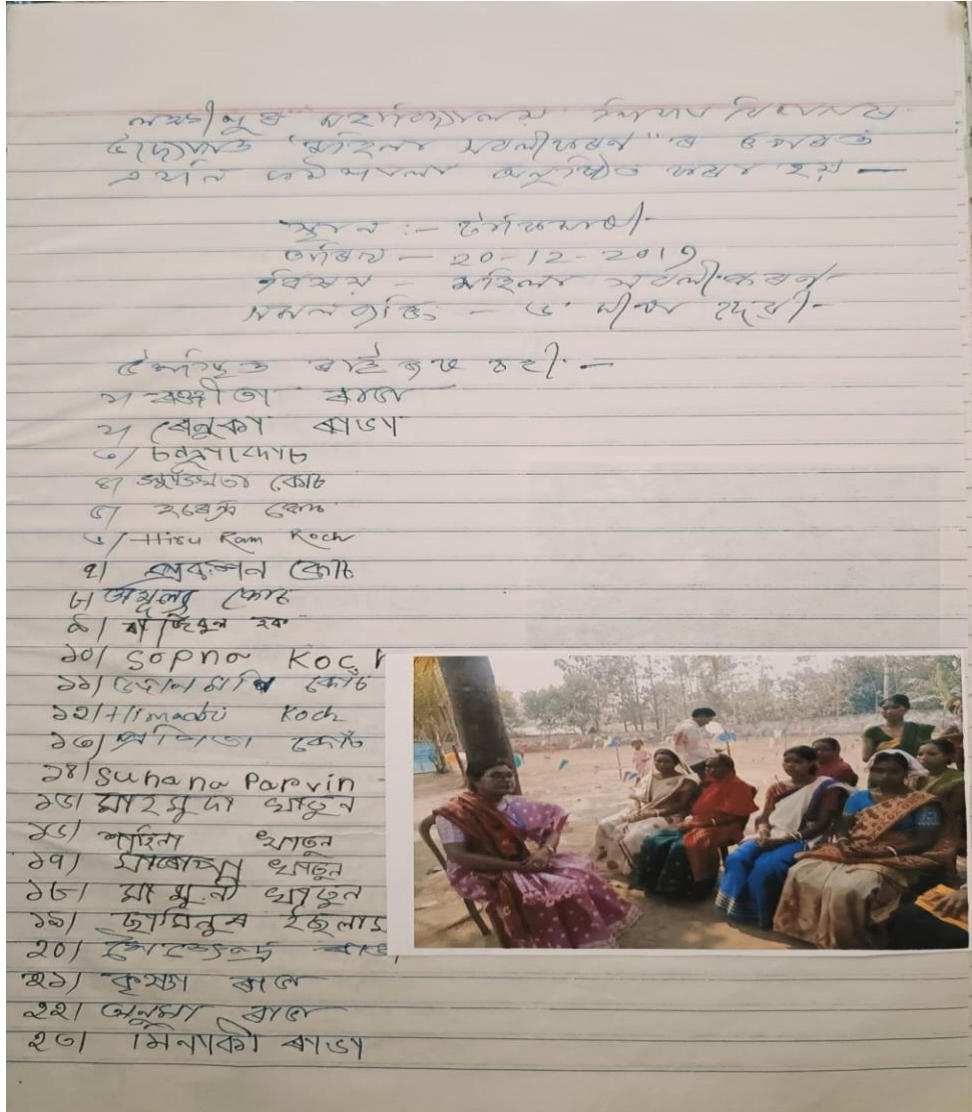 লক্ষীপুৰ মহাবিদ্যালয় শিক্ষা বিভাগৰ
উদ্যোগত "মহিলা সবলীকৰণ" ৰ ওপৰত
এখনি কৰ্মশালা অনুষ্ঠিত কৰা হয় —
স্থান :-
তাৰিখ - 20-12-2019
বিষয় - মহিলা সবলীকৰণ
সমলব্যক্তি - ড°
উপস্থিত ৰাইজৰ চহী :-
১/ ৰঞ্জীতা ৰাভা
২/ ৰেনুকা ৰাভা
৩/ চন্দ্ৰা কোচ
৪/ কোচ
৫/ হৰেন্দ্ৰ কোচ
৬/ Hiru Ram Koch
৭/ কোচ
৮/ অমূল্য কোচ
৯/ হক
১০/ Sopna Koch
১১/ কোচ
১২/ Himadri Koch
১৩/ কোচ
১৪/ Suhana Parvin
১৫/ মাহমুদা খাতুন
১৬/ শাহিনা খাতুন
১৭/ খাতুন
১৮/ মামুনী খাতুন
১৯/ জামিনুৰ ইছলাম
২০/ ৰাভা
২১/ কৃষ্ণা ৰাভা
২২/ অনুমা ৰাভা
২৩/ মিনাকী ৰাভা